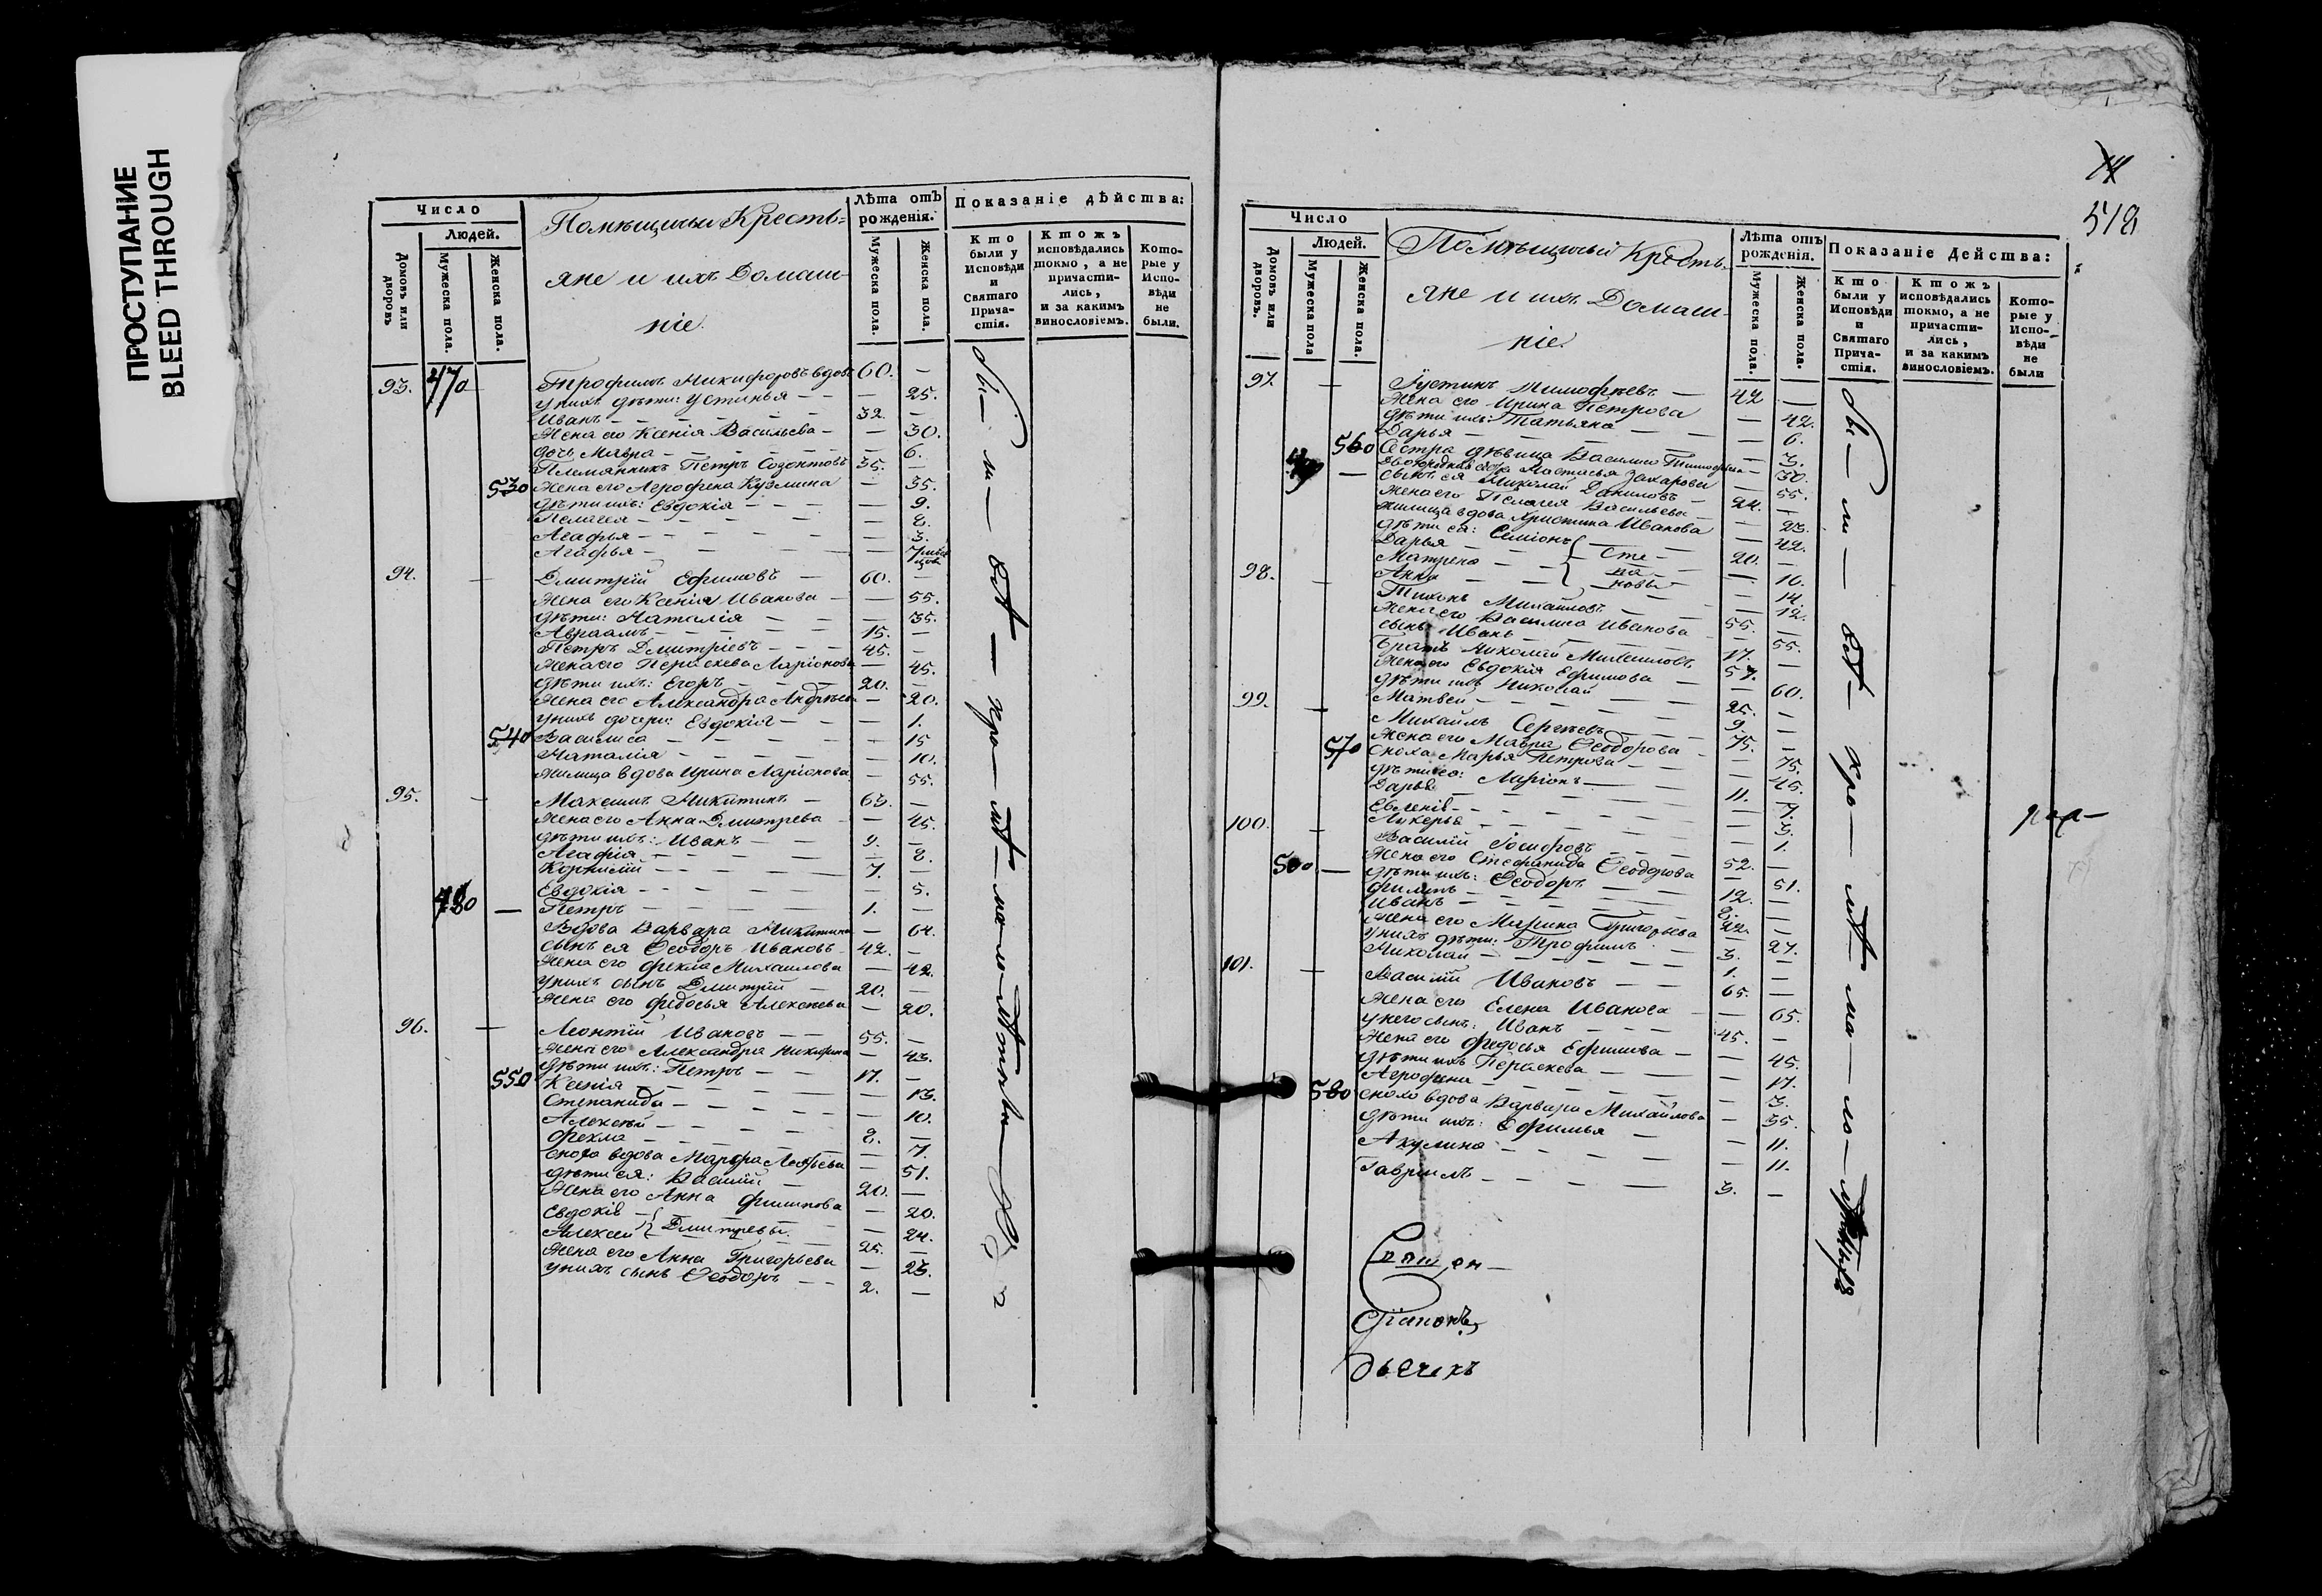 ПРОСТУПАНИЕ
BLEED THROUGH
518
Число
Людей.
Домовъ или дворовъ
Мужеска пола.
Женска пола.
Помѣщичьи Крестья-
яне и ихъ Домаш-
ніе.
Лѣта отъ рожденія.
Мужеска пола.
Женска пола.
Показаніе дѣйства:
Кто были у Исповѣди и Святаго Прича-стія.
Ктожъ исповѣдались токмо, а не причасти-лись, и за какимъ винословіемъ.
Кото-рые у Испо-вѣди не были.
93. 470 Трофимъ Никифоровъ вдовъ 60. —
у нихъ дѣти: Устинья — — 25.
Иванъ — 32. —
Жена его Ксенія Васильева — — 30.
дочь Мавра — — 6.
Племянникъ Петръ Созонтовъ 35. —
530 Жена его Агрофена Кузмина — 35.
дѣти ихъ: Евдокія — — 9.
Пелагея — — 8.
Агафья — — 3.
Агафья — —
94. — Дмитрій Ефимовъ — 60. —
Жена его Ксенія Иванова — — 55.
дѣти: Наталія — — 35.
Авраамъ — 15. —
Петръ Дмитріевъ — 45. —
Жена его Параскева Ларіонова — 45.
дѣти ихъ: Егоръ — 20. —
Жена его Александра Андрѣева — 20.
у нихъ дочери: Евдокія — — 1.
540 Василиса — — 15
Наталія — — 10.
Жилица вдова Ирина Ларіонова — 55.
95. — Максимъ Никитинъ — 63. —
Жена его Анна Дмитрева — 45.
дѣти ихъ: Иванъ — 9. —
Агафія — — 8.
Корнилій — 7. —
Евдокія — — 5.
480 — Петръ — 1. —
Вдова Варвара Никитина — 64.
сынъ ея Ѳеодоръ Ивановъ — 42. —
Жена его Фекла Михаилова — 42.
у нихъ сынъ Дмитрій — 20. —
Жена его Федосья Алексѣева — 20.
96. — Леонтій Ивановъ — 55. —
Жена его Александра — 43.
дѣти ихъ: Петръ — 17. —
550 Ксенія — — 13.
Степанида — — 10.
Алексѣй — 8. —
Фекла — — 7.
сноха вдова Марфа — 51.
дѣти ея: Василій — 20. —
Жена его Анна Филипова — 20.
Евдокія — } Дмитревы — 24.
Алексей — 25. —
Жена его Анна Григорьева — 23.
у нихъ сынъ Ѳеодоръ — 2. —
Число
Людей.
Домовъ или дворовъ.
Мужеска пола
Женска пола.
Помѣщичьи Кресть-
яне и ихъ Домаш-
ніе.
Лѣта отъ рожденія.
Мужеска пола.
Женска пола.
Показаніе Действа:
Кто были у Исповѣди и Святаго Прича-стія.
Ктожъ исповѣдались токмо, а не причасти-лись, и за какимъ винословіемъ.
Кото-рые у Испо-вѣди не были
97. — Іустинъ Тимофѣевъ — 42 —
Жена его Ирина Петрова — 42.
дѣти ихъ: Татьяна — — 6.
Дарья — — 3.
560 Сестра дѣвица Василиса Тимофѣева — 30.
Настасья Захарова — 55.
сынъ ея Николай Даниловъ — 22. —
Жена его Пелагея Васильева — 23.
Жилица вдова Христина Иванова — 42.
дѣти ея: Семіонъ — 20. —
Дарья — } Сте-па-новы — 16.
Матрена — — 14.
Анна — — 12.
98. — Тихонъ Михаиловъ — 55. —
Жена его Василиса Иванова — 55.
сынъ Иванъ — 17. —
Братъ Николай Михаиловъ 57. —
Жена его Евдокія Ефимова — 60.
дѣти ихъ Николай — 25. —
Матвей — 9. —
99. — Михаилъ Сергѣевъ — 75. —
Жена его Мавра Ѳеодорова — 75.
570 сноха Марья Петрова — 45.
дѣти ея: Ларіонъ — 11. —
Дарья — — 7.
Евгенія — — 3.
Лукерья — — 1.
100. — Василій Іосифовъ — 52. —
Жена его Степанида Ѳеодорова — 51.
500 — дѣти ихъ: Ѳеодоръ — 12. —
Филипъ — 8. —
Иванъ — 22. —
Жена его Марина Григорьева — 27.
у нихъ дѣти: Трофимъ — 3. —
Николай — 1. —
101. — Василій Ивановъ — 65. —
Жена его Елена Иванова — 65.
у него сынъ: Иванъ — 45. —
Жена его Федосья Ефимова — — 45.
дѣти ихъ Параскева — — 17.
Агрофена — — 3.
580 сноха вдова Варвара Михайлова — 35.
дѣти ихъ: Ефимья — — 11.
Акулина — — 11.
Гавриилъ — 3. —
бы — ли — всѣ — кро — мѣ — ма — ло — лѣтныхъ
бы — ли — всѣ — кро — мѣ — ма — ло — лѣтныхъ
Священ —
діаконъ
дьячекъ